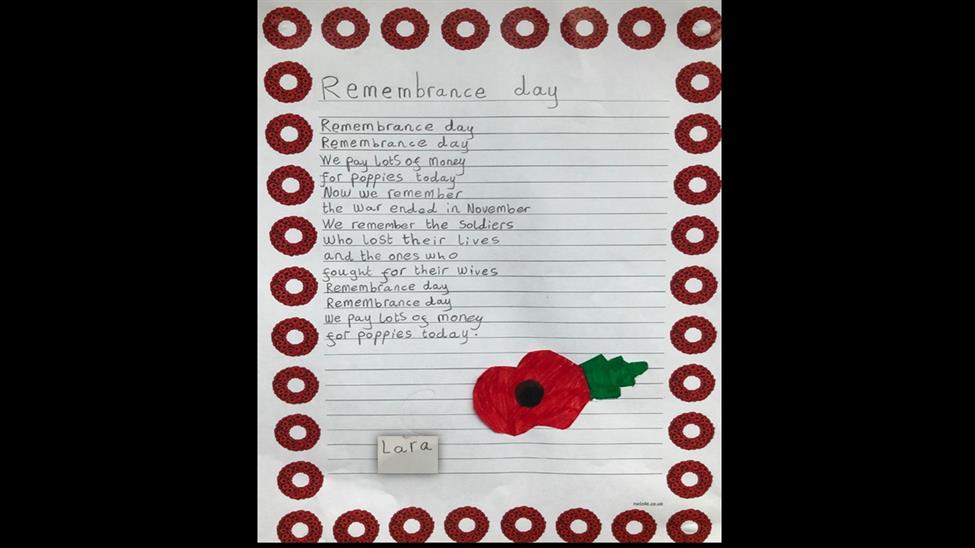 Remembrance day
Remembrance day
Remembrance day
We pay lots of money
for poppies today
Now we remember
the war ended in November
We remember the soldiers
who lost their lives
and the ones who
fought for their wives
Remembrance day
Remembrance day
We pay lots of money
for poppies today.
Lara